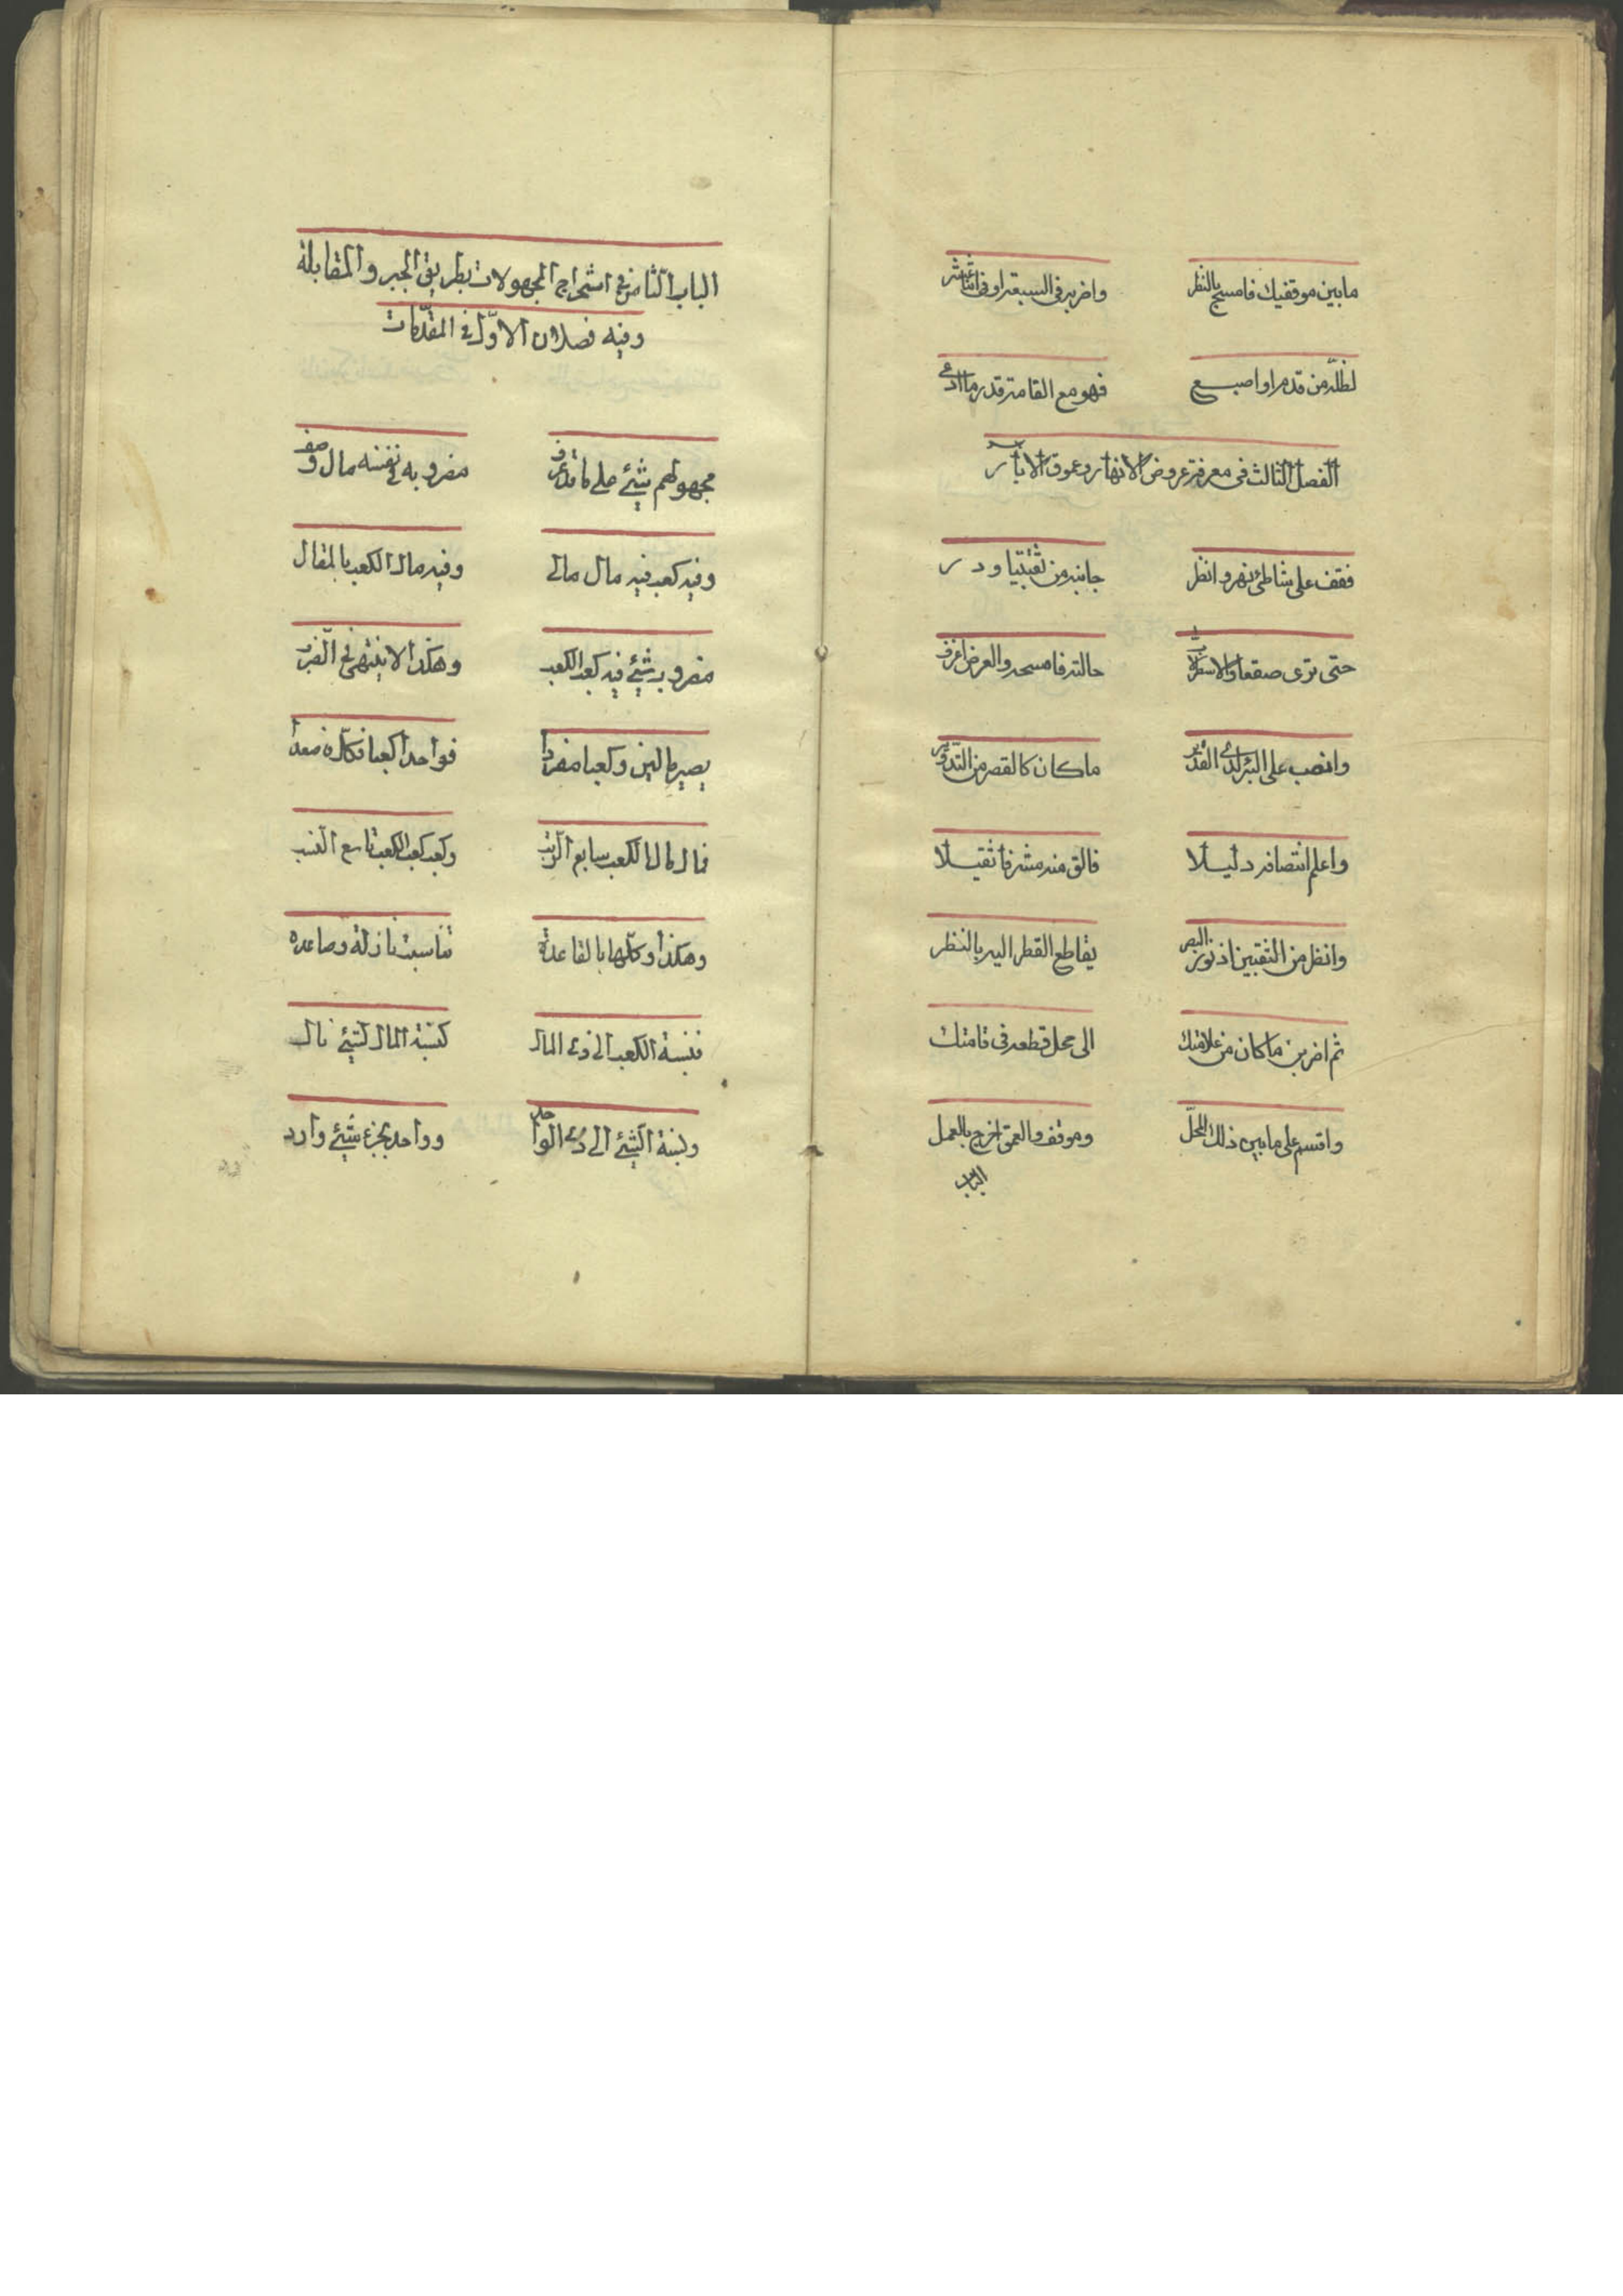 ما بين موقفيك فامسح بالنظر واضربه في السبعة او في اثنا عشر
لظله من قدم او اصبع فهو مع القامة قدر ما ادعي
الفصل الثالث في معرفة عروض الانهار وعموق الابار
فقف على شاطئ نهر وانظر جانبه من ثقبتيها ودر
حتى ترى صقعا والاسطرلاب حالته فامسحه والعرض اعرف
وانصب على البئر لدى التقدير ما كان كالقصر من التدوير
واعلم انتصافه دليلا فالق منه مشرفا ثقيلا
وانظر من الثقبين اذ نور البصر يقاطع القطر اليه بالنظر
ثم اضربن ما كان من علامتك الى محل قطعه في قامتك
واقسم على ما بين ذلك المحل وموقف والعمق اخرج بالعمل
الباب
الباب الثامن في استخراج المجهولات بطريق الجبر والمقابلة
وفيه فصلان الاول في المقدمات
مجهولهم شيئ على ما قد عرف مضروبه في نفسه مال وصف
وفيه كعب فيه مال مال وفيه مال الكعب بالمقال
مضروبه شيئ فيه كعب الكعب وهكذا لا ينتهي في الضرب
يصير مالين وكعبا مفردا فواحدا كعبا فكله صعدا
فمال مال الكعب سابع الرتب وكعب كعب الكعب تاسع النسب
وهكذا وكلها بالقاعدة تناسبت نازلة وصاعده
فنسبة الكعب الى ذي المال كنسبة المال لشيئ تال
ونسبة الشيئ الى ذي الواحد وواحد بجزء شيئ وارد